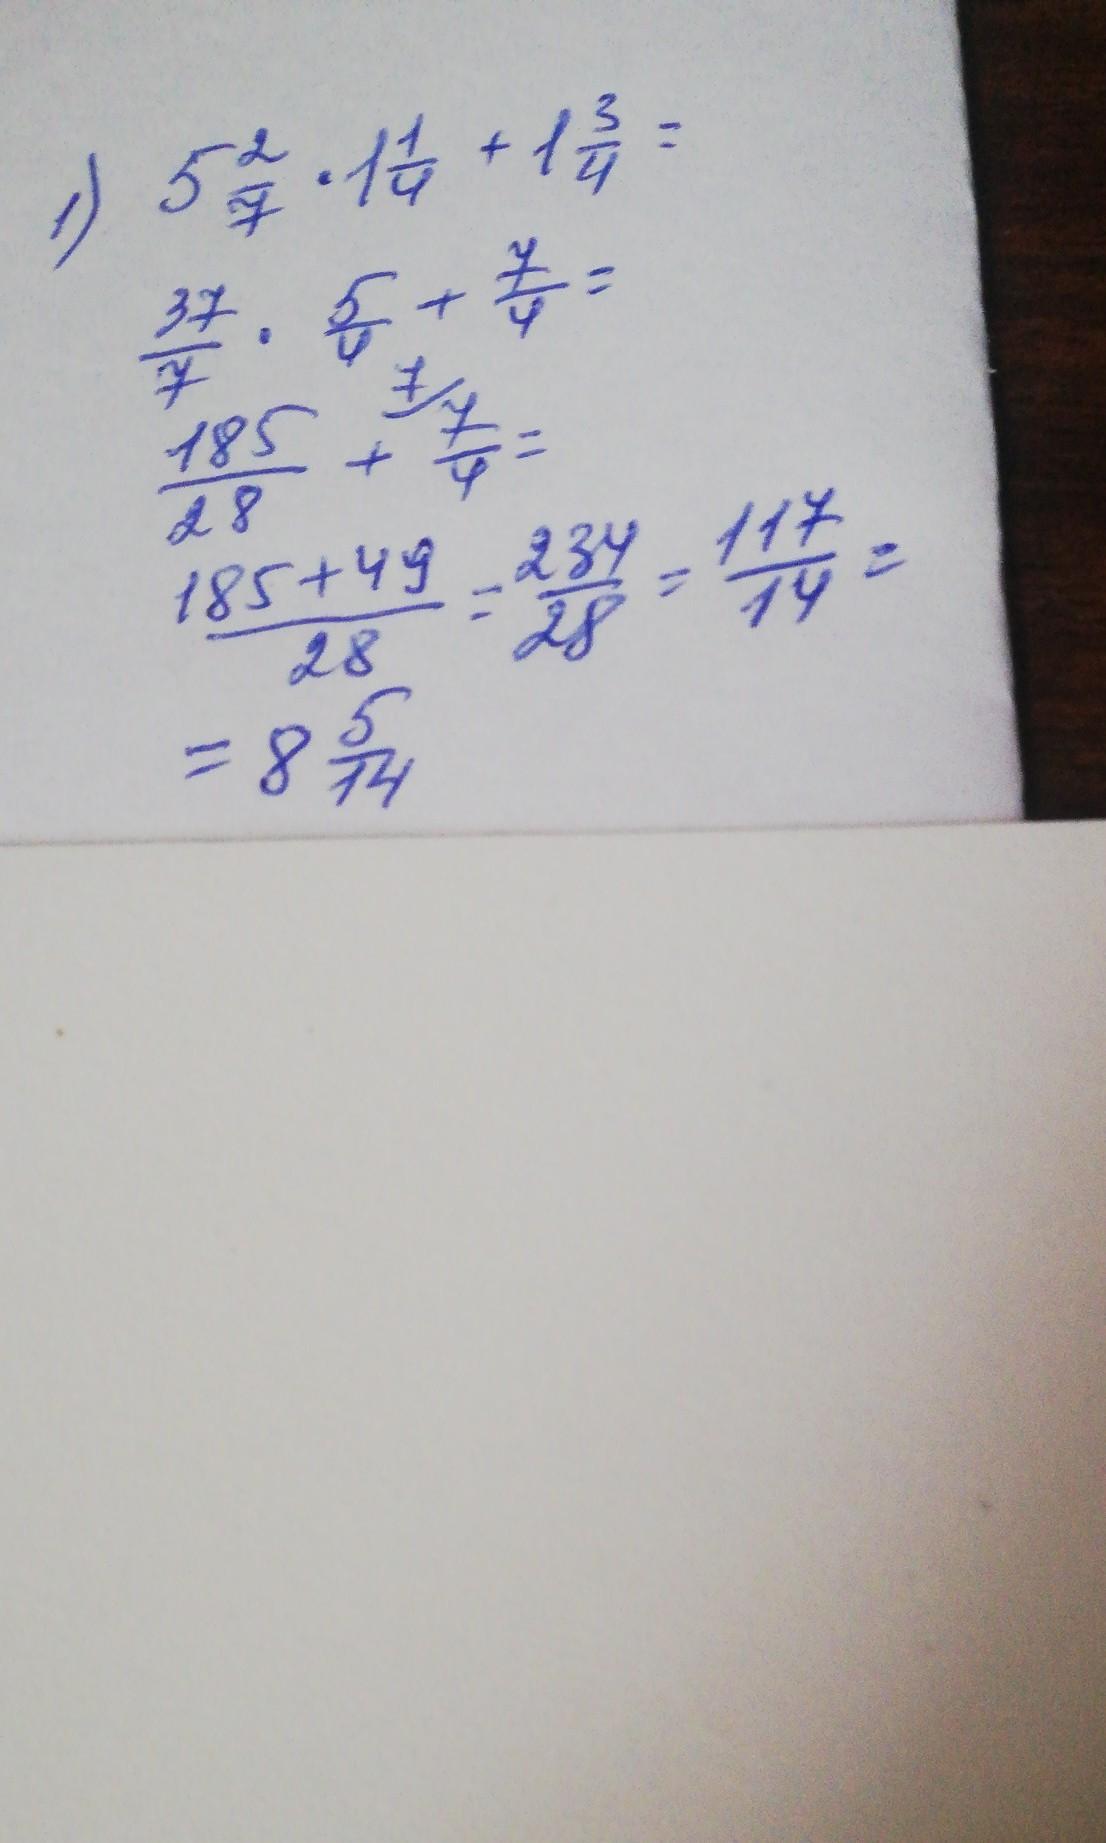 1) 5 2/7 · 1 1/4 + 1 3/4 =
37/7 · 5/4 + 7/4 =
185/28 + 7/ 7/4 =
185+49/28 = 234/28 = 117/14 =
= 8 5/14